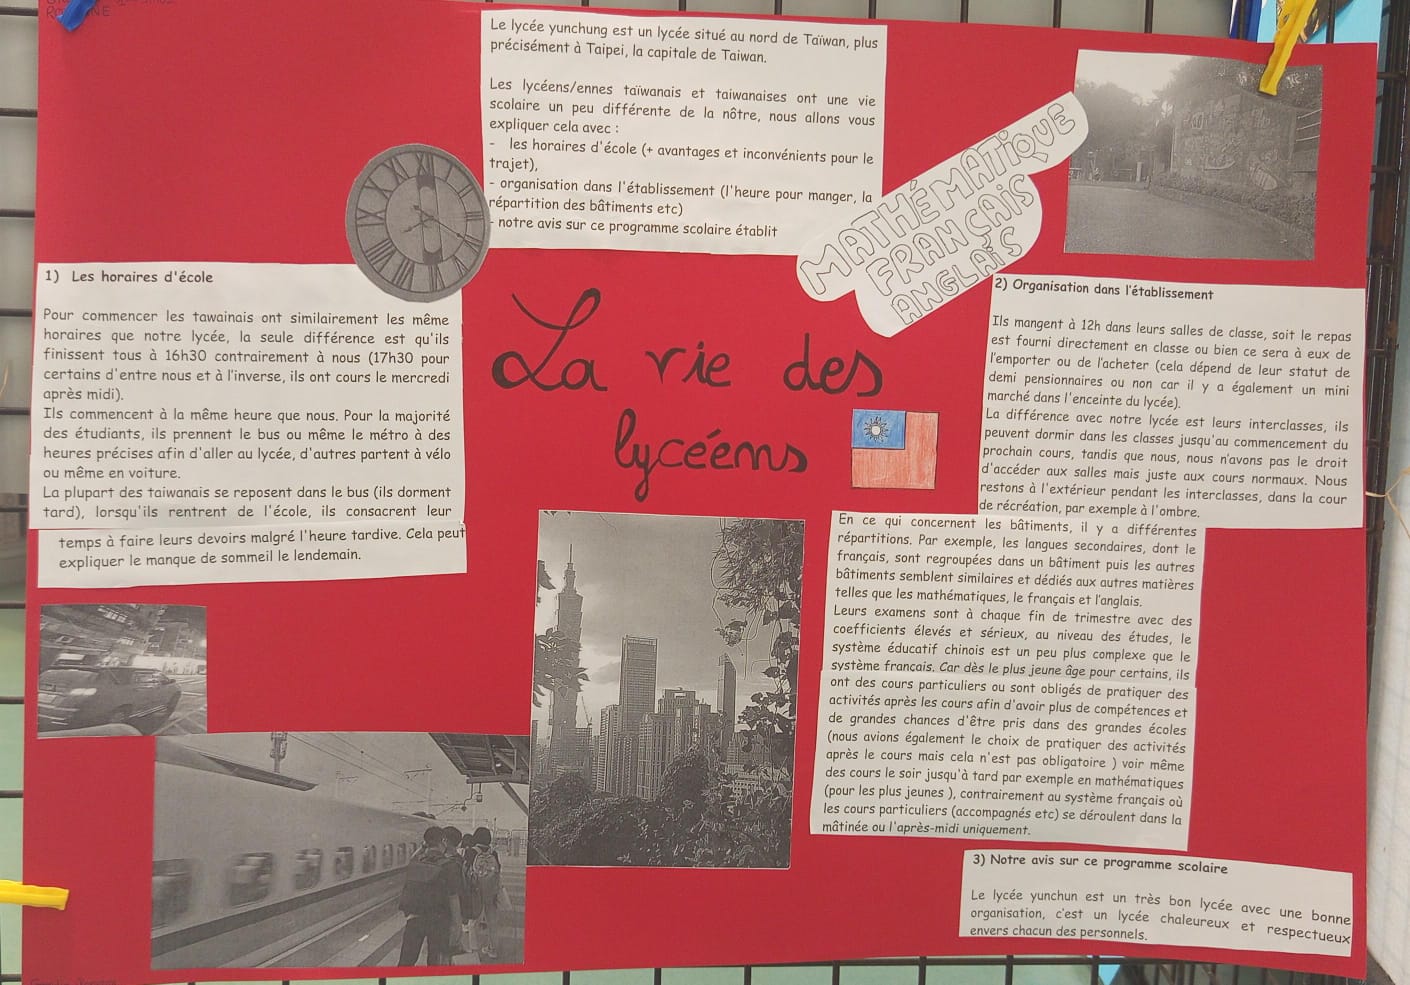 Le lycée yunchung est un lycée situé au nord de Taïwan, plus
précisément à Taipei, la capitale de Taiwan.
Les lycéens/ennes taïwanais et taiwanaises ont une vie
scolaire un peu différente de la nôtre, nous allons vous
expliquer cela avec :
- les horaires d'école (+ avantages et inconvénients pour le
trajet),
- organisation dans l'établissement (l'heure pour manger, la
répartition des bâtiments etc)
- notre avis sur ce programme scolaire établit
MATHÉMATIQUE
FRANÇAIS
ANGLAIS
La vie des
lycéens
1) Les horaires d'école
Pour commencer les tawainais ont similairement les même
horaires que notre lycée, la seule différence est qu'ils
finissent tous à 16h30 contrairement à nous (17h30 pour
certains d'entre nous et à l'inverse, ils ont cours le mercredi
après midi).
Ils commencent à la même heure que nous. Pour la majorité
des étudiants, ils prennent le bus ou même le métro à des
heures précises afin d'aller au lycée, d'autres partent à vélo
ou même en voiture.
La plupart des taiwanais se reposent dans le bus (ils dorment
tard), lorsqu'ils rentrent de l'école, ils consacrent leur
temps à faire leurs devoirs malgré l'heure tardive. Cela peut
expliquer le manque de sommeil le lendemain.
2) Organisation dans l'établissement
Ils mangent à 12h dans leurs salles de classe, soit le repas
est fourni directement en classe ou bien ce sera à eux de
l'emporter ou de l'acheter (cela dépend de leur statut de
demi pensionnaires ou non car il y a également un mini
marché dans l'enceinte du lycée).
La différence avec notre lycée est leurs interclasses, ils
peuvent dormir dans les classes jusqu'au commencement du
prochain cours, tandis que nous, nous n'avons pas le droit
d'accéder aux salles mais juste aux cours normaux. Nous
restons à l'extérieur pendant les interclasses, dans la cour
de récréation, par exemple à l'ombre.
En ce qui concernent les bâtiments, il y a différentes
répartitions. Par exemple, les langues secondaires, dont le
français, sont regroupées dans un bâtiment puis les autres
bâtiments semblent similaires et dédiés aux autres matières
telles que les mathématiques, le français et l'anglais.
Leurs examens sont à chaque fin de trimestre avec des
coefficients élevés et sérieux, au niveau des études, le
système éducatif chinois est un peu plus complexe que le
système français. Car dès le plus jeune âge pour certains, ils
ont des cours particuliers ou sont obligés de pratiquer des
activités après les cours afin d'avoir plus de compétences et
de grandes chances d'être pris dans des grandes écoles
(nous avions également le choix de pratiquer des activités
après le cours mais cela n'est pas obligatoire ) voir même
des cours le soir jusqu'à tard par exemple en mathématiques
(pour les plus jeunes ), contrairement au système français où
les cours particuliers (accompagnés etc) se déroulent dans la
mâtinée ou l'après-midi uniquement.
3) Notre avis sur ce programme scolaire
Le lycée yunchun est un très bon lycée avec une bonne
organisation, c'est un lycée chaleureux et respectueux
envers chacun des personnels.